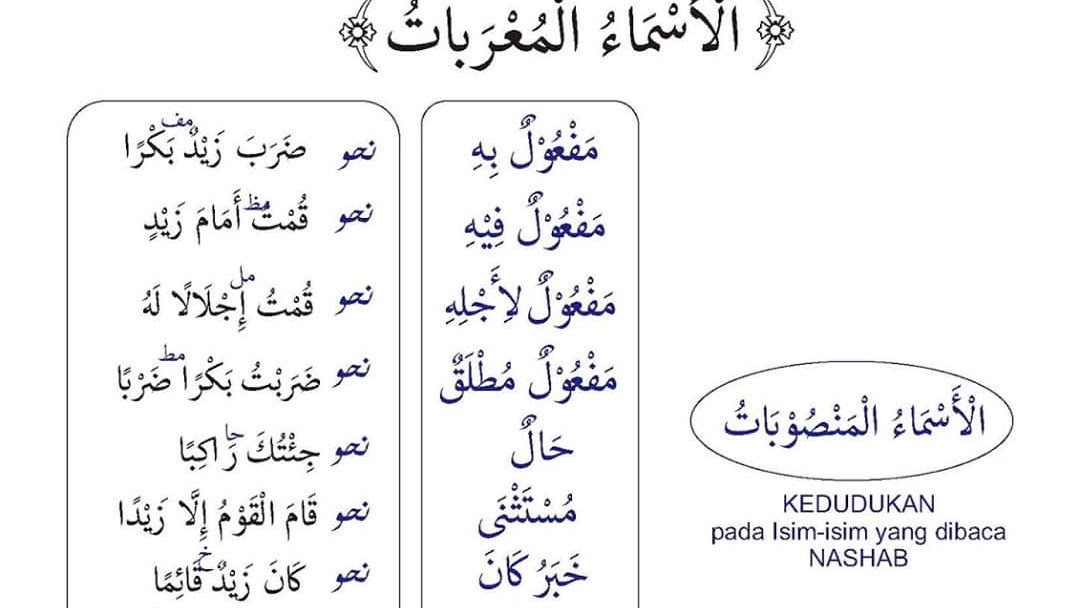 الْأَسْمَاءُ الْمُعْرَبَاتُ
مَفْعُوْلٌ بِهِ
نحو ضَرَبَ زَيْدٌ بَكْرًا
مف
مَفْعُوْلٌ فِيْهِ
نحو قُمْتُ أَمَامَ زَيْدٍ
مظ
مَفْعُوْلٌ لِأَجْلِهِ
نحو قُمْتُ إِجْلَالًا لَهُ
مل
مَفْعُوْلٌ مُطْلَقٌ
نحو ضَرَبْتُ بَكْرًا ضَرْبًا
مط
حَالٌ
نحو جِئْتُكَ رَاكِبًا
حا
مُسْتَثْنَى
نحو قَامَ الْقَوْمُ إِلَّا زَيْدًا
خَبَرُ كَانَ
نحو كَانَ زَيْدٌ قَائِمًا
خ
الْأَسْمَاءُ الْمَنْصُوْبَاتُ
KEDUDUKAN
pada Isim-isim yang dibaca
NASHAB